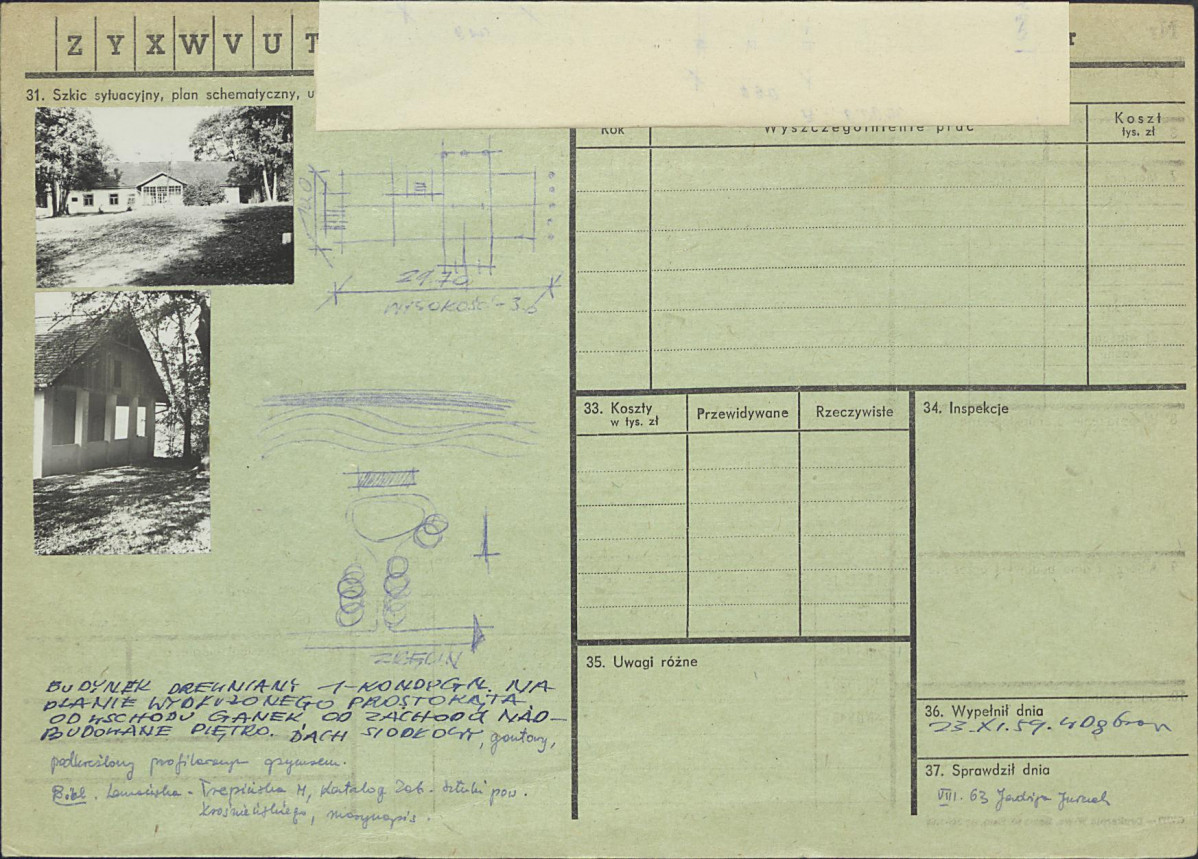 Z Y X W V U T
31. Szkic sytuacyjny, plan schematyczny, u
Rok
Wyszczególnienie prac
Koszt
tys. zł
29.70
WYSOKOŚĆ - 3.6
33. Koszty
w tys. zł
Przewidywane
Rzeczywiste
34. Inspekcje
35. Uwagi różne
36. Wypełnił dnia
23. XI. 59.
37. Sprawdził dnia
VIII. 63
BUDYNEK DREWNIANY 1-KONDYGN. NA
PLANIE WYDŁUŻONEGO PROSTOKĄTA.
OD WSCHODU GANEK, OD ZACHODU NAD-
BUDOWANE PIĘTRO. DACH SIODŁOWY, gontowy,
podkreślony profilowanym gzymsem.
Bibl. - Trepińska M, Katalog Zab. Sztuki pow.
Krośnieńskiego, maszynopis.